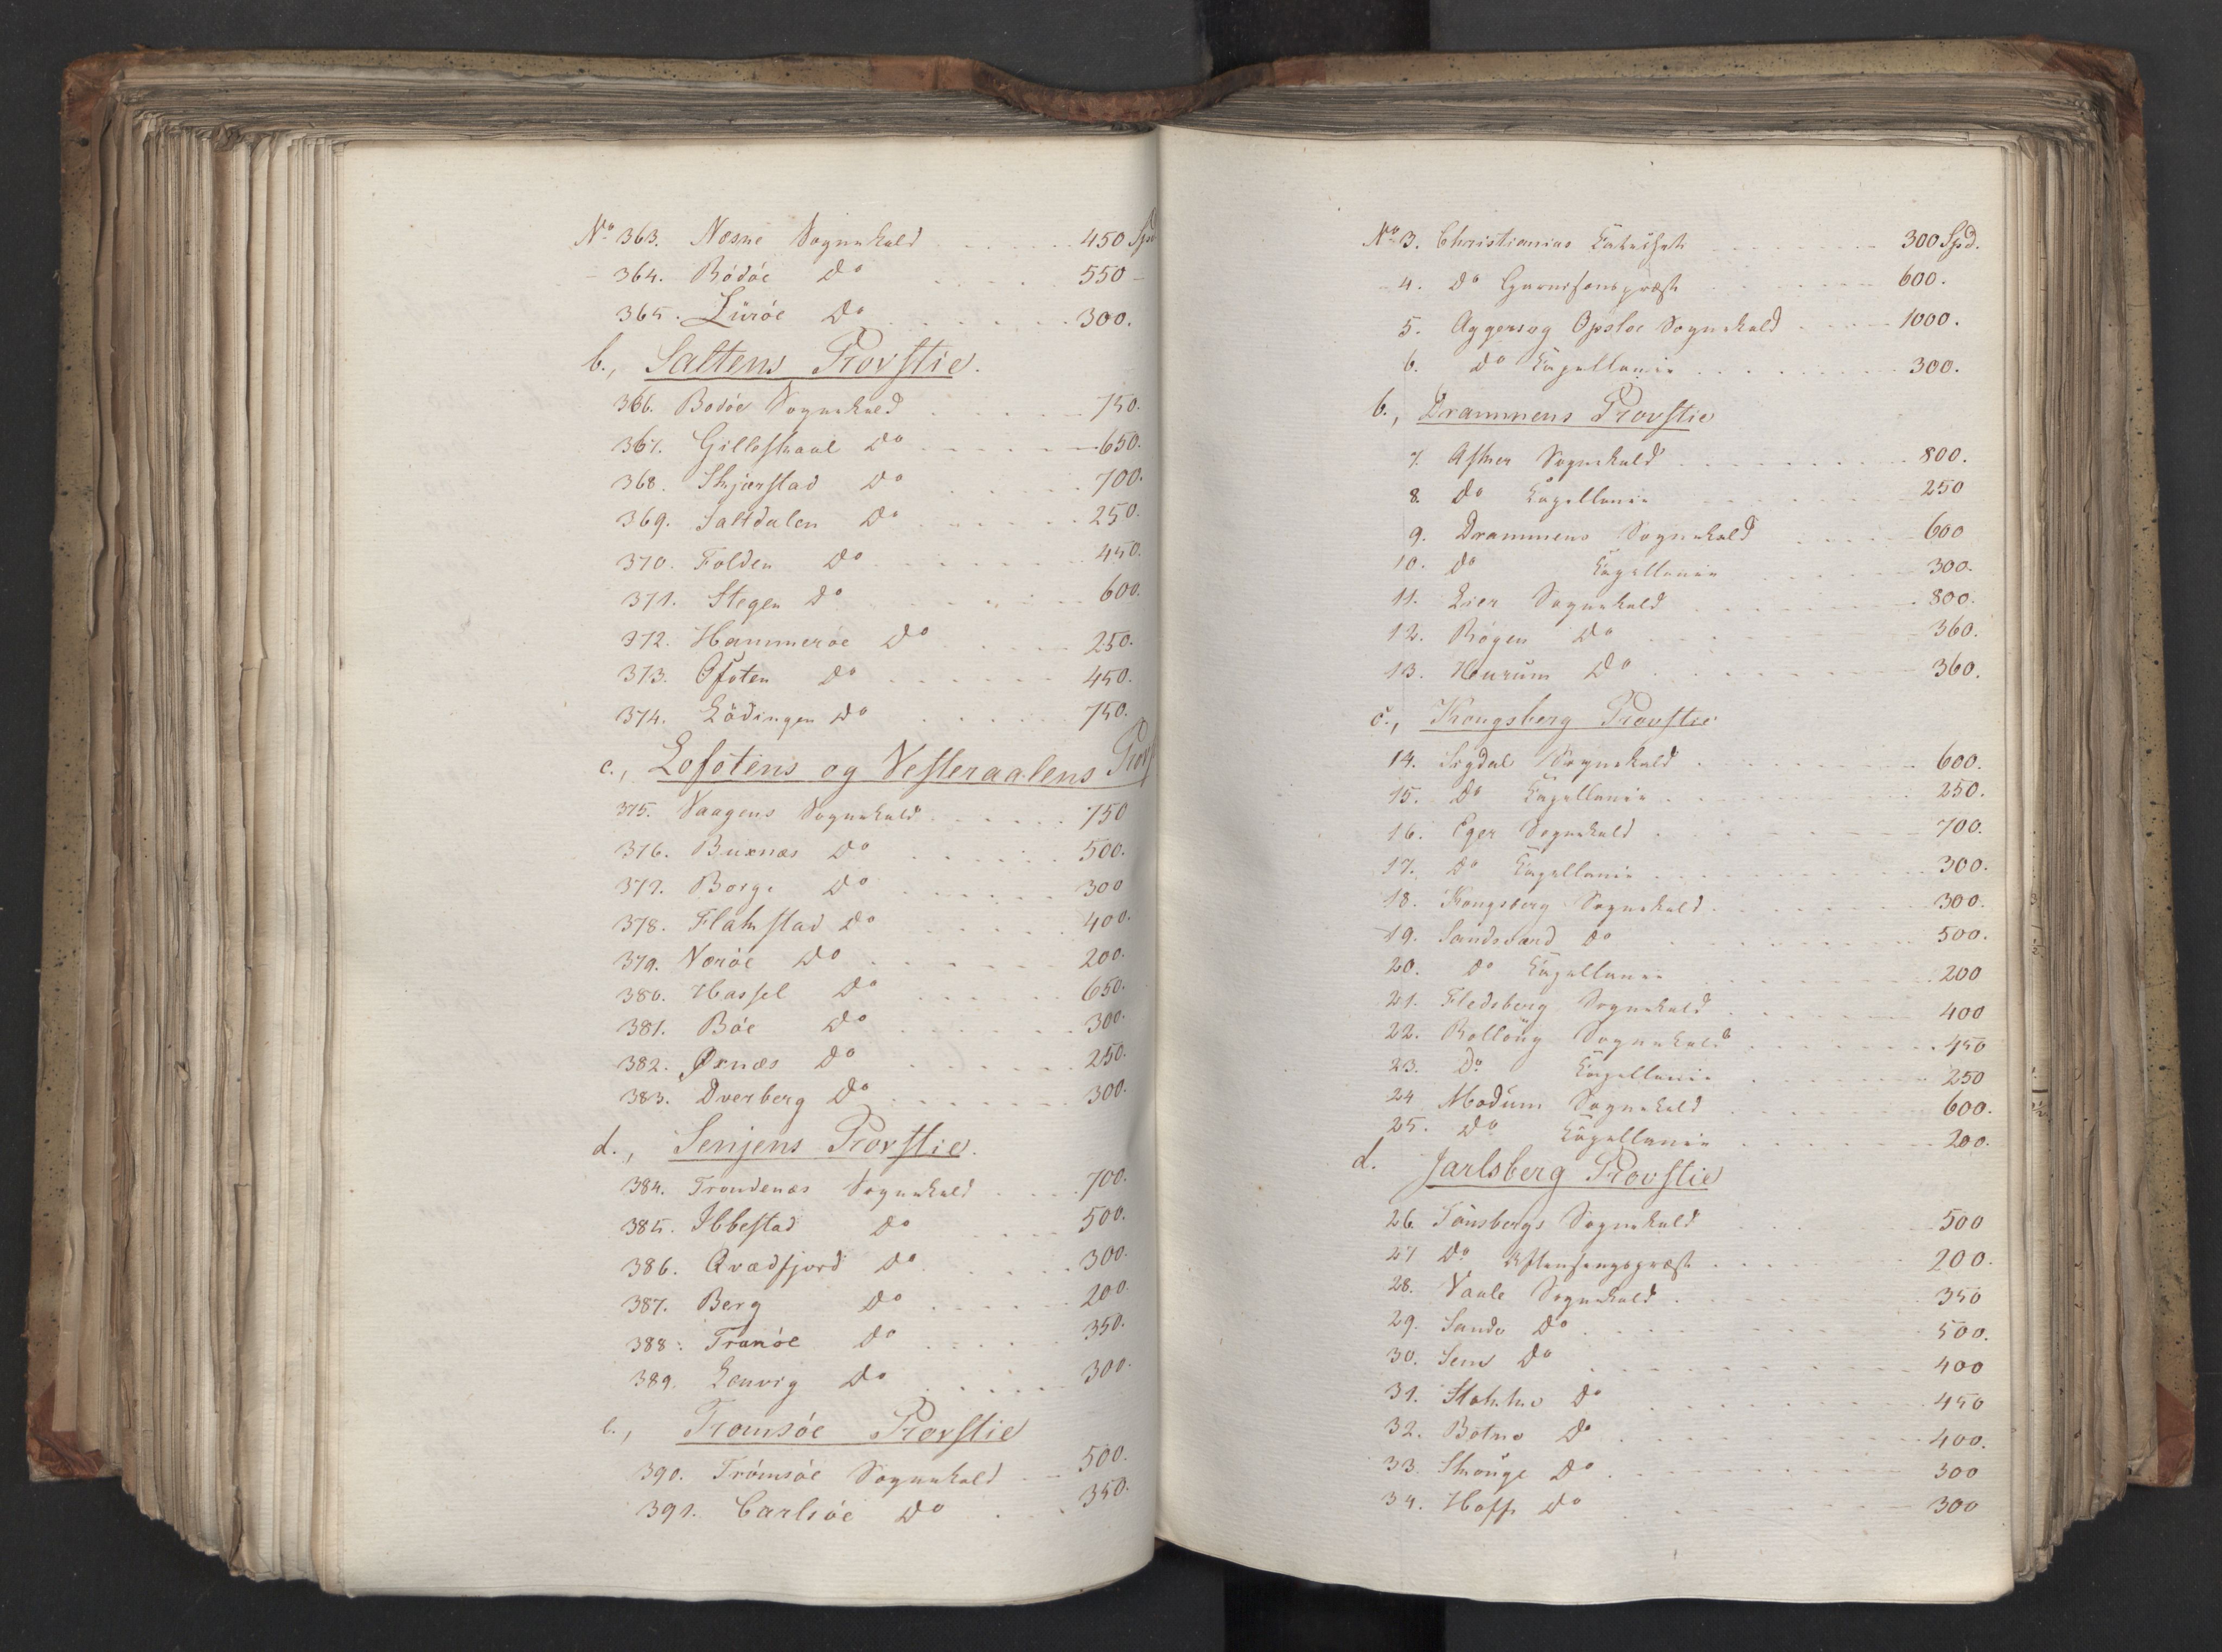 No 363. Næsne Sognekald . . . . . 450 Spd
- 364. Rödöe Do . . . . . 550 -
365. Lüröe Do . . . . . 300.
b., Saltens Provstie.
366. Bodöe Sognekald . . . . . 750.
367. Gilleskaal Do . . . . . 650.
368. Skjærstad Do . . . . . 700.
369. Saltdalen Do . . . . . 250.
370. Folden Do . . . . . 450.
371. Stegen Do . . . . . 600.
372. Hammeröe Do . . . . . 250.
373. Ofoten Do . . . . . 450.
374. Lödingen Do . . . . . 750.
c., Lofotens og Vesteraalens Prov
375. Vaagens Sognekald . . . . . 750
376. Buxnæs Do . . . . . 500.
377. Borge Do . . . . . 300
378. Flakstad Do . . . . . 400.
379. Væröe Do . . . . . 200.
380. Hassel Do . . . . . 650.
381. Böe Do . . . . . 300.
382. Øxnæs Do . . . . . 250.
383. Dverberg Do . . . . . 300.
d., Senjens Provstie.
384. Trondenæs Sognekald . . . . 700.
385. Ibbestad Do . . . . 500.
386. Qvædfjord Do . . . . . 300.
387. Berg Do . . . . . 200.
388. Tranöe Do . . . . 350.
389. Lenvig Do . . . . . 300.
e., Tromsöe Provstie
390. Trömsöe Sognekald . . 500.
391. Carlsöe Do . . . 350.
No 3. Christianias Catechet . . . . . 300 Spd.
- 4. Do Garnisonspræst . . . . . 600.
5. Aggers og Opsloe Sognekald . . . . 1000.
6. Do Capellanie . . . . . 300.
b., Drammens Provstie
7. Asker Sognekald . . . . . 800.
8. Do Capellanie . . . . . 250
9. Drammens Sognekald . . . . . 600
10. Do Capellanie . . . . . 300.
11. Lier Sognekald . . . . . 800.
12. Rögen Do . . . . . 360.
13. Hurum Do . . . . . 360.
c., Kongsberg Provstie
14. Sigdal Sognekald . . . . . 600.
15. Do Capellanie . . . . . 250.
16. Eger Sognekald . . . . . 700.
17. Do Capellanie . . . . . 300.
18. Kongsberg Sognekald . . . . . 300.
19. Sandsværd Do . . . . . 500.
20. Do Capellanie . . . . . 200
21. Fledsberg Sognekald . . . . . 400
22. Rolloug Sognekald . . . . . 450
23. Do Capellanie . . . . . 250
24 Modum Sognekald . . . . . 600.
25. Do Capellanie . . . . . 200.
d. Jarlsberg Provstie
26. Tönsbergs Sognekald . . . . . 500
27 Do Aftensangspræst . . . . . 200.
28. Vaale Sognekald . . . . . 350
29. Sande Do . . . . . 500.
30. Sem Do . . . . . 400
31. Stokke Do . . . . . 450
32. Botne Do . . . . . 400.
33. Skouge Do . . . . . 300
34. Hoff Do . . . . . 300